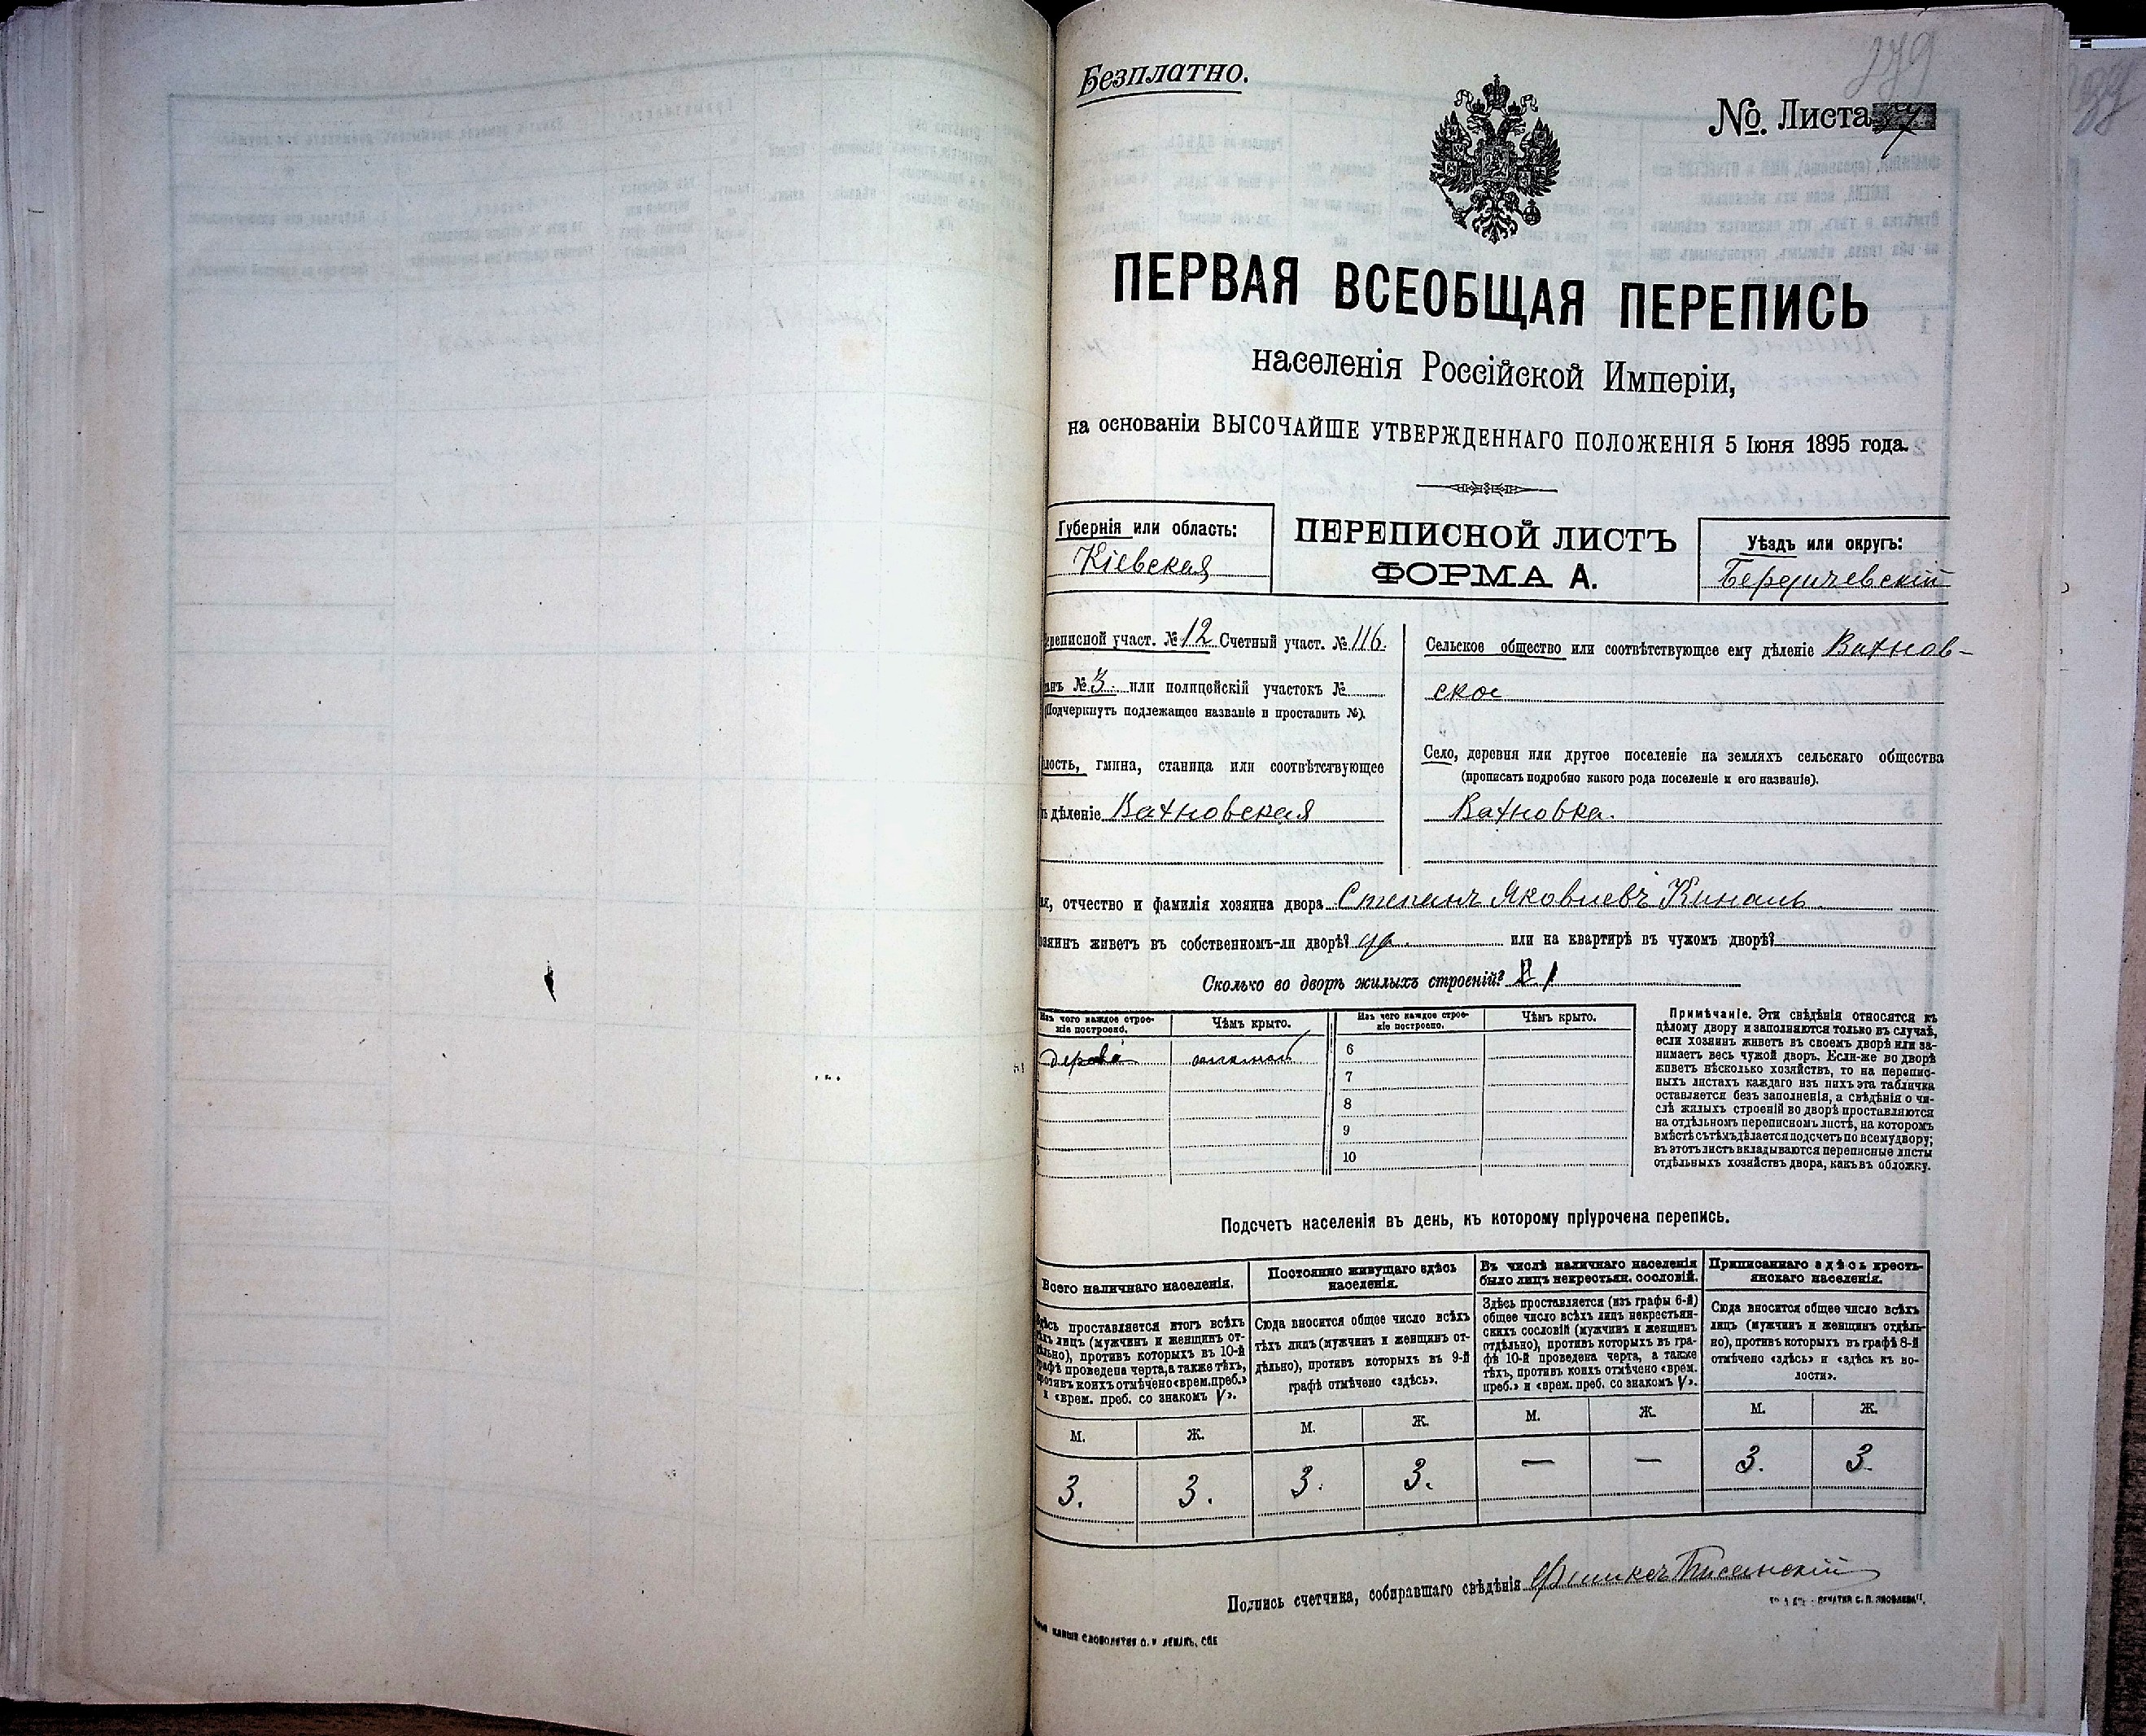 Безплатно.
279
№. Листа 7
ПЕРВАЯ ВСЕОБЩАЯ ПЕРЕПИСЬ
населенія Россійской Имперіи,
на основаніи ВЫСОЧАЙШЕ УТВЕРЖДЕННАГО ПОЛОЖЕНІЯ 5 Іюня 1895 года.
Губернія или область:
Кіевская
ПЕРЕПИСНОЙ ЛИСТЪ
ФОРМА А.
Уѣздъ или округъ:
Бердичевскій
реписной участ. № 12 Счетный участ. № 116.
анъ № 3. или полицейскій участокъ №
(Подчеркнуть подлежащее названіе и проставить №).
лость, гмина, станица или соотвѣтствующее
ъ дѣленіе Вахновская
Сельское общество или соотвѣтствующее ему дѣленіе Вахнов-
ское
Село, деревня или другое поселеніе на земляхъ сельскаго общества
(прописать подробно какого рода поселеніе и его названіе).
Вахновка.
я, отчество и фамилія хозяина двора Степанъ Яковлевъ Киналь.
озяинъ живетъ въ собственномъ-ли дворѣ? да. или на квартирѣ въ чужомъ дворѣ?
Сколько во дворѣ жилыхъ строеній? 1
Изъ чего каждое строе-
ніе построено.
Чѣмъ крыто.
Изъ чего каждое строе-
ніе построено.
Чѣмъ крыто.
дерева
6
7
8
9
10
Примѣчаніе. Эти свѣдѣнія относятся къ
цѣлому двору и заполняются только въ случаѣ,
если хозяинъ живетъ въ своемъ дворѣ или за-
нимаетъ весь чужой дворъ. Если-же во дворѣ
живетъ нѣсколько хозяйствъ, то на перепис-
ныхъ листахъ каждаго изъ нихъ эта табличка
оставляется безъ заполненія, а свѣдѣнія о чи-
слѣ жилыхъ строеній во дворѣ проставляются
на отдѣльномъ переписномъ листѣ, на которомъ
вмѣстѣ съ тѣмъ дѣлается подсчетъ по всему двору;
въ этотъ листъ вкладываются переписные листы
отдѣльныхъ хозяйствъ двора, какъ въ обложку.
Подсчетъ населенія въ день, къ которому пріурочена перепись.
Всего наличнаго населенія.
Здѣсь проставляется итогъ всѣхъ
тѣхъ лицъ (мужчинъ и женщинъ от-
дѣльно), противъ которыхъ въ 10-й
графѣ проведена черта, а также тѣхъ,
противъ коихъ отмѣчено «врем. преб.»
и «врем. преб. со знакомъ V».
М. Ж.
3. 3.
Постоянно живущаго здѣсь
населенія.
Сюда вносится общее число всѣхъ
тѣхъ лицъ (мужчинъ и женщинъ от-
дѣльно), противъ которыхъ въ 9-й
графѣ отмѣчено «здѣсь».
М. Ж.
3. 3.
Въ числѣ наличнаго населенія
было лицъ некрестьян. сословій.
Здѣсь проставляется (изъ графы 6-й)
общее число всѣхъ лицъ некрестьян-
скихъ сословій (мужчинъ и женщинъ
отдѣльно), противъ которыхъ въ гра-
фѣ 10-й проведена черта, а также
тѣхъ, противъ коихъ отмѣчено «врем.
преб.» и «врем. преб. со знакомъ V».
М. Ж.
— —
Приписаннаго здѣсь кресть-
янскаго населенія.
Сюда вносится общее число всѣхъ
лицъ (мужчинъ и женщинъ отдѣль-
но), противъ которыхъ въ графѣ 8-й
отмѣчено «здѣсь» и «здѣсь къ во-
лости».
М. Ж.
3. 3.
Подпись счетчика, собиравшаго свѣдѣнія
СЛОВОЛИТНЯ О. И. ЛЕМАНЪ, СПБ
ПЕЧАТНЯ С. П. ЯКОВЛЕВА".